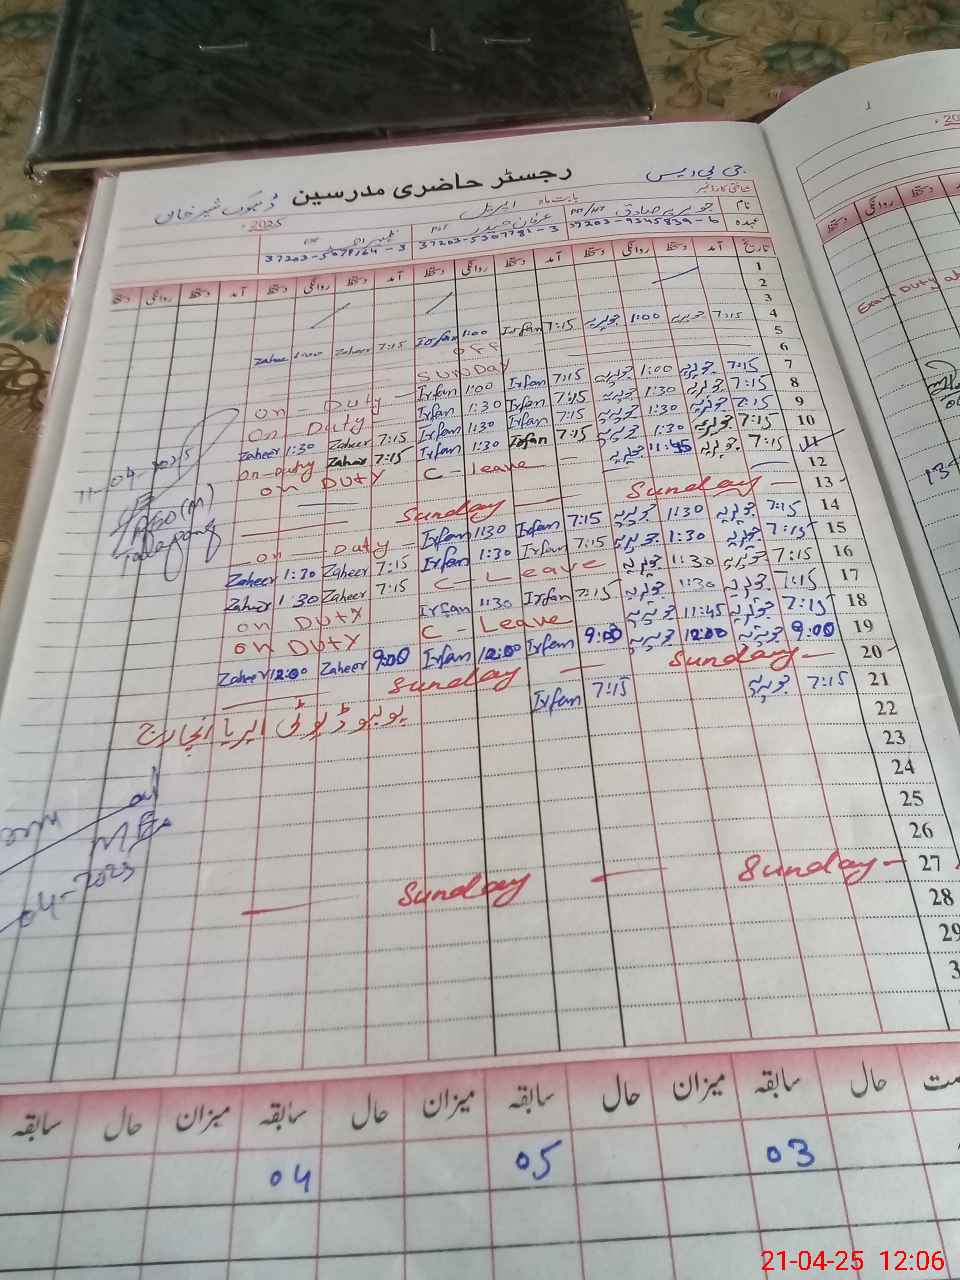 رجسٹر حاضری مدرسین
جی پی ایس
ڈھوک شیر خان
بابت ماہ اپریل 2025
شناختی کارڈ نمبر
نام
عہدہ
37203-5307781-3
تاریخ آمد دستخط روانگی دستخط آمد دستخط روانگی دستخط آمد دستخط روانگی دستخط آمد دستخط روانگی دستخط
1
2
3
4 7:15 1:00 7:15 Irfan 1:00 Irfan 7:15 Zaheer 1:00 Zaheer
5 OFF
6 SUNDAY
7 7:15 1:00 7:15 Irfan 1:00 Irfan on - Duty
8 7:15 1:30 7:15 Irfan 1:30 Irfan on - Duty
9 7:15 1:30 7:15 Irfan 1:30 Irfan 7:15 Zaheer 1:30 Zaheer
10 7:15 1:30 7:15 Irfan 1:30 Irfan 7:15 Zaheer on-duty
11 7:15 11:45 C - Leave on DUTY
12
13 Sunday Sunday
14 7:15 1:30 7:15 Irfan 1:30 Irfan on Duty
15 7:15 1:30 7:15 Irfan 1:30 Irfan 7:15 Zaheer 1:30 Zaheer
16 7:15 1:30 C - Leave 7:15 Zaheer 1:30 Zaheer
17 7:15 1:30 7:15 Irfan 1:30 Irfan on DUTY
18 7:15 11:45 C - Leave on DUTY
19 9:00 12:00 9:00 Irfan 12:00 Irfan 9:00 Zaheer 12:00 Zaheer
20 Sunday Sunday
21 7:15 7:15 Irfan پولیو ڈیوٹی ایریا انچارج
22
23
24
25
26
27 Sunday Sunday
28
29
حال سابقہ میزان حال سابقہ میزان حال سابقہ میزان حال سابقہ
03 05 04
Exam Duty
21-04-25 12:06